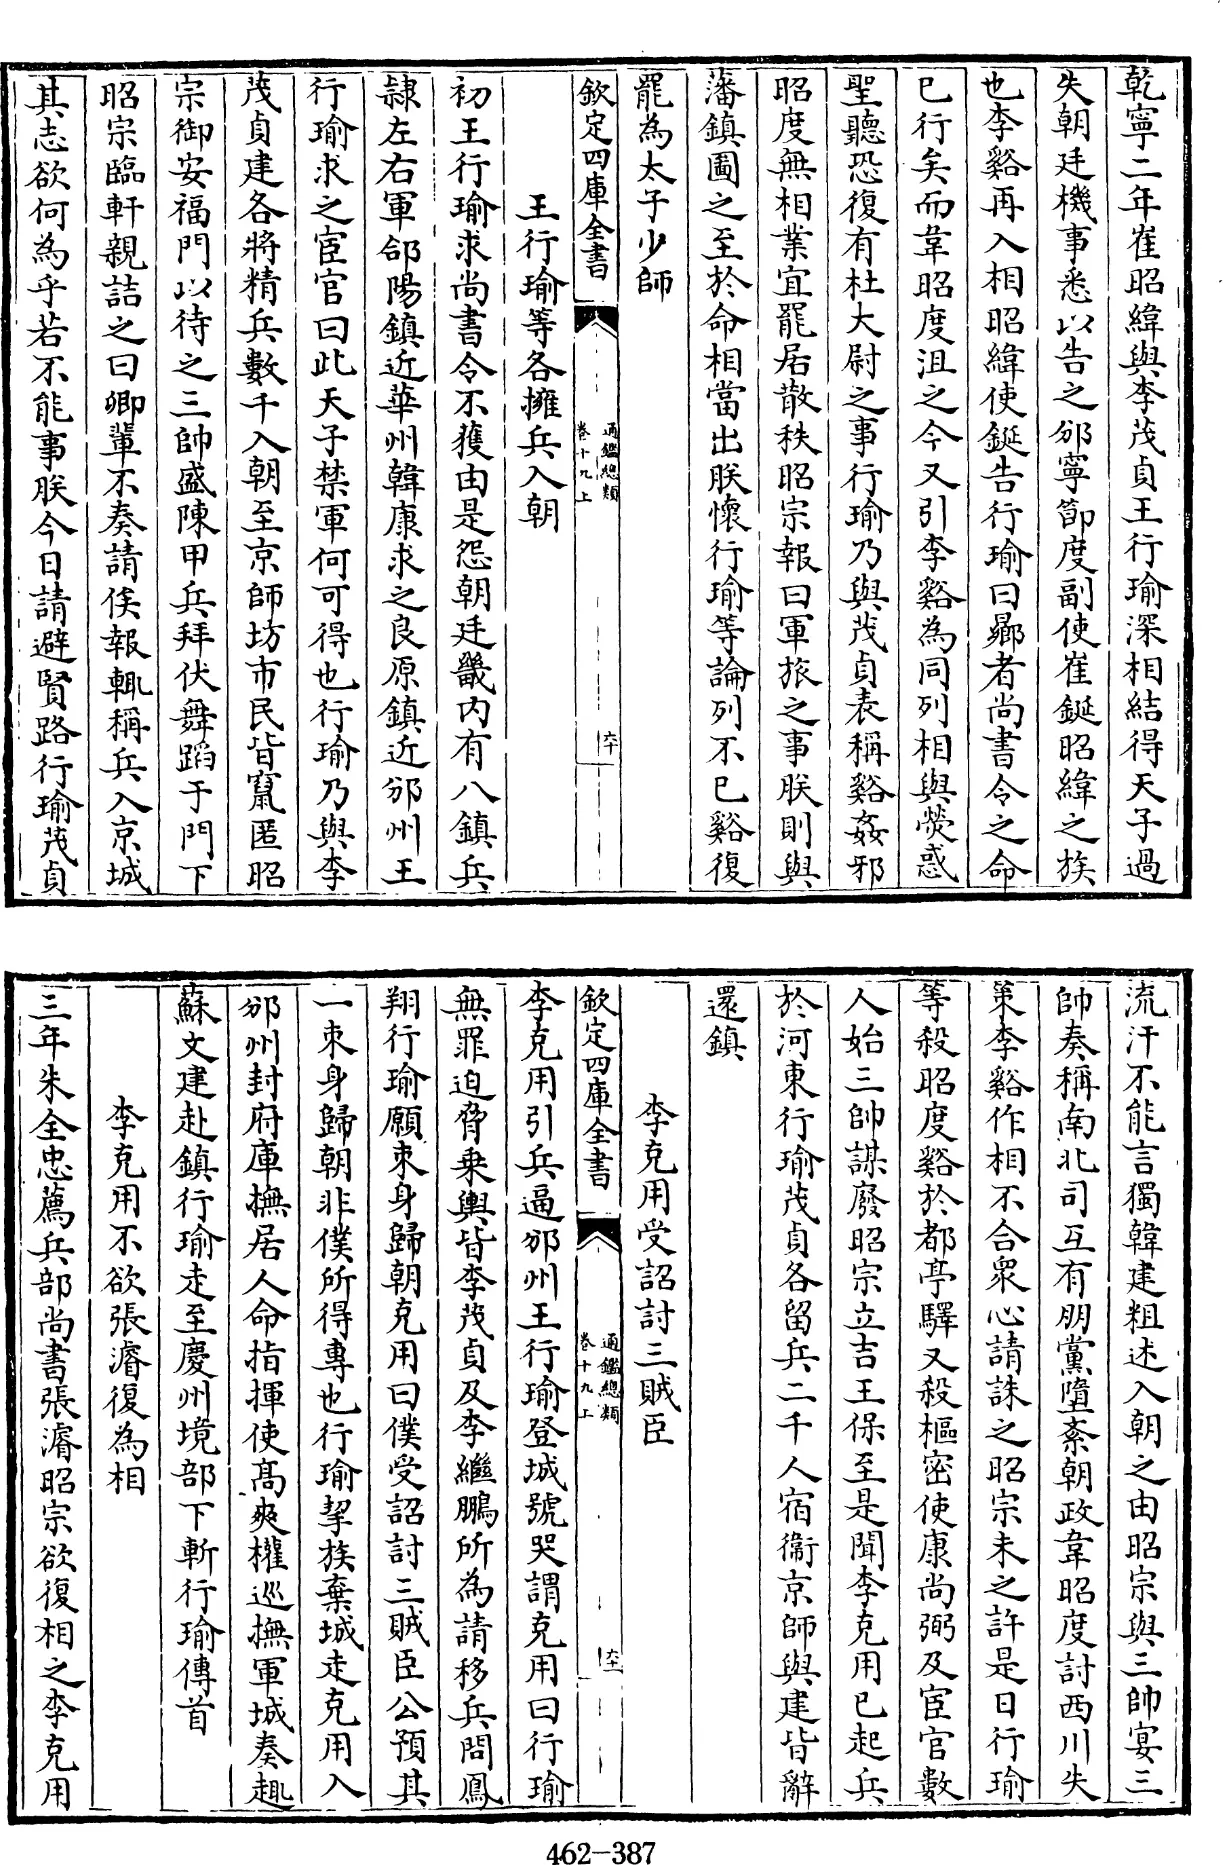 乾寧二年崔昭緯與李茂貞王行瑜深相結得天子過
失朝廷機事悉以告之邠寧節度副使崔鋋昭緯之族
也李谿再入相昭緯使鋋告行瑜曰曏者尚書令之命
已行矣而韋昭度沮之今又引李谿為同列相與熒惑
聖聽恐復有杜大尉之事行瑜乃與茂貞表稱谿姦邪
昭度無相業宜罷居散秩昭宗報曰軍旅之事朕則與
藩鎮圖之至於命相當出朕懷行瑜等論列不已谿復
罷為太子少師
欽定四庫全書
通鑑總類
卷十九上
六十
王行瑜等各擁兵入朝
初王行瑜求尚書令不獲由是怨朝廷畿内有八鎮兵
隸左右軍郃陽鎮近華州韓康求之良原鎮近邠州王
行瑜求之宦官曰此天子禁軍何可得也行瑜乃與李
茂貞建各將精兵數千入朝至京師坊市民皆竄匿昭
宗御安福門以待之三帥盛陳甲兵拜伏舞蹈于門下
昭宗臨軒親詰之曰卿輩不奏請俟報輒稱兵入京城
其志欲何為乎若不能事朕今日請避賢路行瑜茂貞
流汗不能言獨韓建粗述入朝之由昭宗與三帥宴三
帥奏稱南北司互有朋黨墮紊朝政韋昭度討西川失
策李谿作相不合衆心請誅之昭宗未之許是日行瑜
等殺昭度谿於都亭驛又殺樞密使康尚弼及宦官數
人始三帥謀廢昭宗立吉王保至是聞李克用已起兵
於河東行瑜茂貞各留兵二千人宿衞京師與建皆辭
還鎮
李克用受詔討三賊臣
欽定四庫全書
通鑑總類
卷十九上
六十一
李克用引兵逼邠州王行瑜登城號哭謂克用曰行瑜
無罪迫脅乗輿皆李茂貞及李繼鵬所為請移兵問鳳
翔行瑜願束身歸朝克用曰僕受詔討三賊臣公預其
一束身歸朝非僕所得專也行瑜挈族棄城走克用入
邠州封府庫撫居人命指揮使髙爽權巡撫軍城奏趣
蘇文建赴鎮行瑜走至慶州境部下斬行瑜傳首
李克用不欲張濬復為相
三年朱全忠薦兵部尚書張濬昭宗欲復相之李克用
462-387